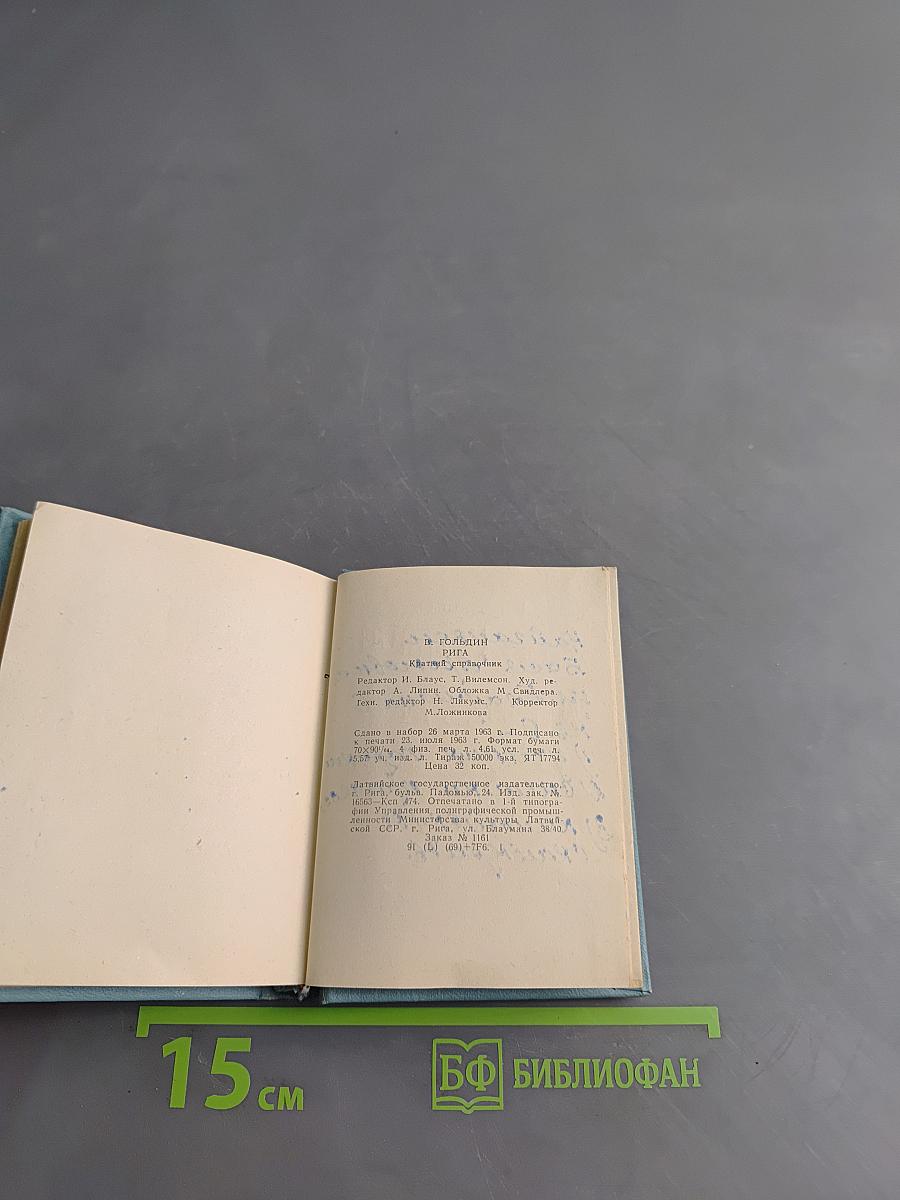 В. ГОЛЬДИН
РИГА
Краткий справочник
Редактор И. Блаус, Т. Вилемсон. Худ. ре-
дактор А. Липин. Обложка М. Свидлера.
Техн. редактор Н. Ликумс. Корректор
М. Ложникова
Сдано в набор 26 марта 1963 г. Подписано
к печати 23. июля 1963 г. Формат бумаги
70×90¹/₆₄. 4 физ. печ. л. 4,61 усл. печ. л.
5,57 уч. изд. л. Тираж 50000 экз. ЯТ 17794
Цена 32 коп.
Латвийское государственное издательство,
г. Рига, бульв. Падомью, 24. Изд. зак. №
16563—Ксп 474. Отпечатано в 1-й типогра-
фии Управления полиграфической промыш-
ленности Министерства культуры Латвий-
ской ССР, г. Рига, ул. Блаумана 38/40.
Заказ № 1161
91 (L) (69)+7F6. 1
15 см
БФ БИБЛИОФАН